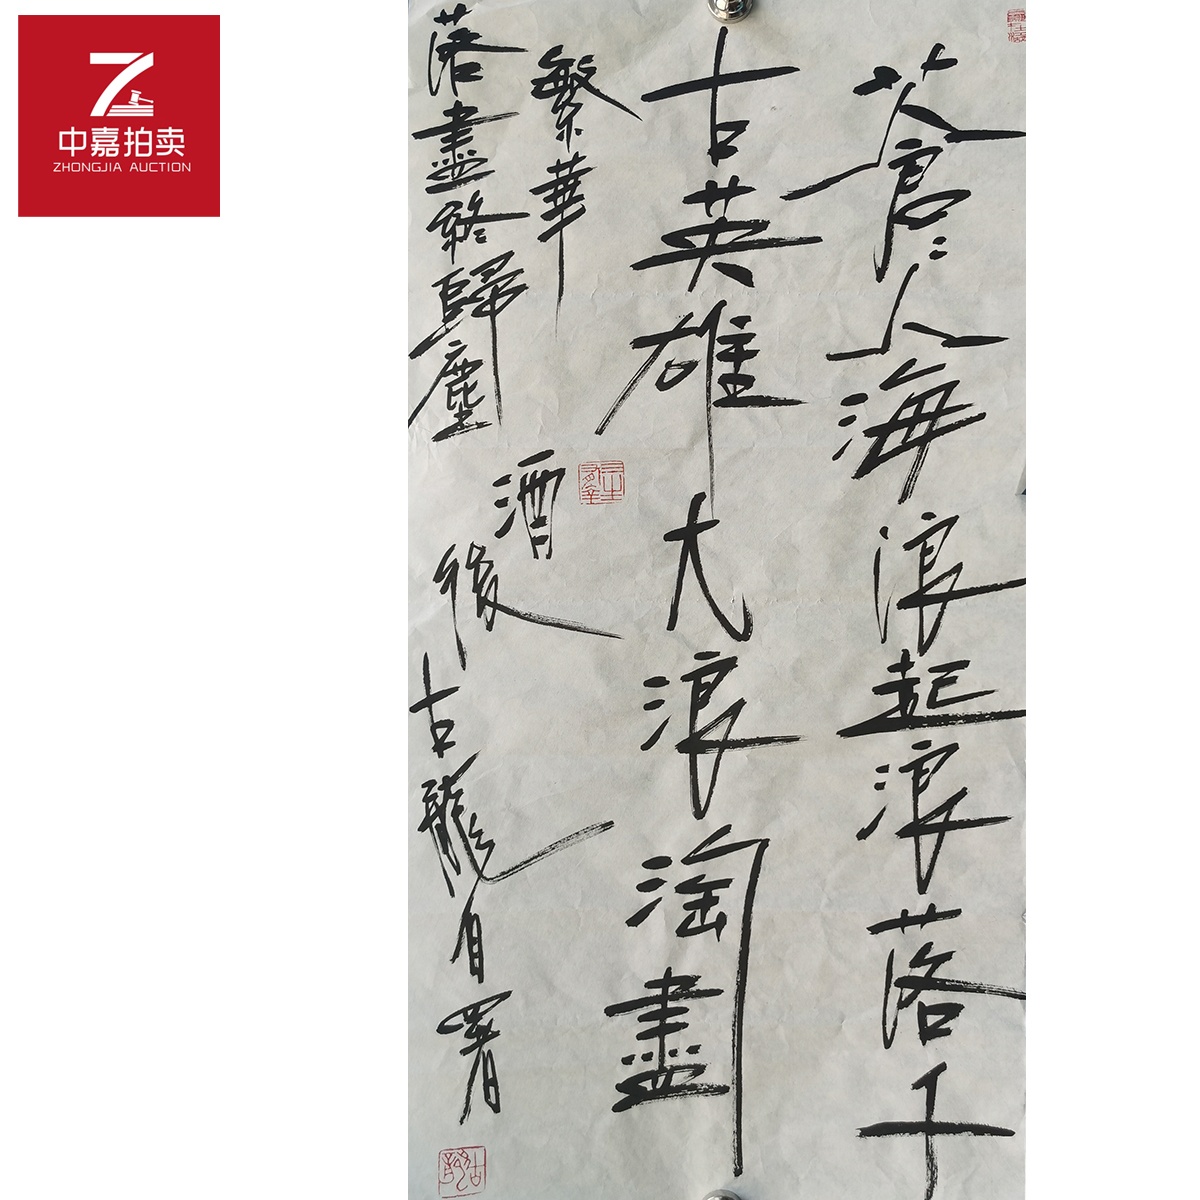 中嘉拍卖
ZHONGJIA AUCTION
蒼〻人海浪起浪落千
古英雄大浪淘盡
繁華
落盡終歸塵
酒
後
古龍自署